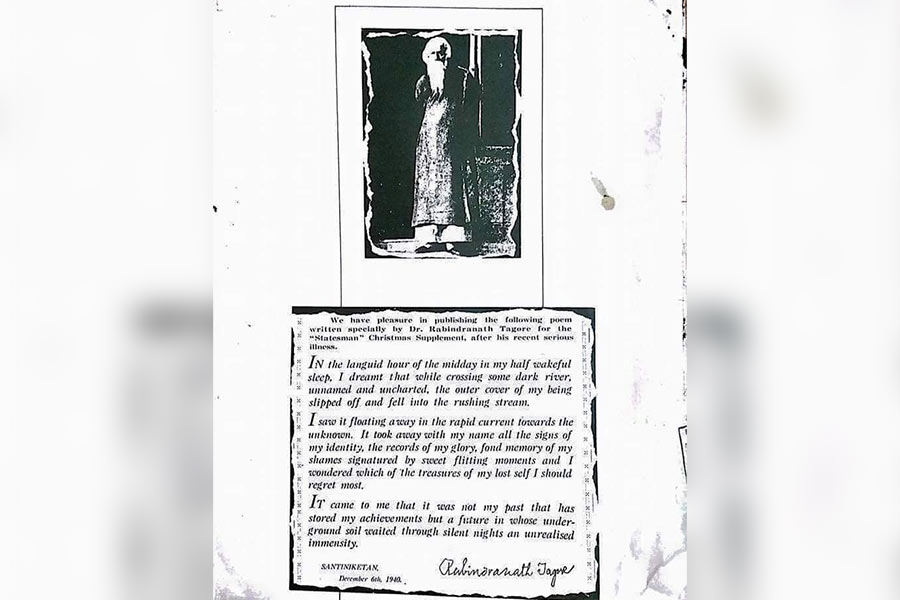 We have pleasure in publishing the following poem
written specially by Dr. Rabindranath Tagore for the
"Statesman" Christmas Supplement, after his recent serious
illness.
IN the languid hour of the midday in my half wakeful
sleep, I dreamt that while crossing some dark river,
unnamed and uncharted, the outer cover of my being
slipped off and fell into the rushing stream.
I saw it floating away in the rapid current towards the
unknown. It took away with my name all the signs of
my identity, the records of my glory, fond memory of my
shames signatured by sweet flitting moments and I
wondered which of the treasures of my lost self I should
regret most.
IT came to me that it was not my past that has
stored my achievements but a future in whose under-
ground soil waited through silent nights an unrealised
immensity.
SANTINIKETAN,
December 6th, 1940.
Rabindranath Tagore